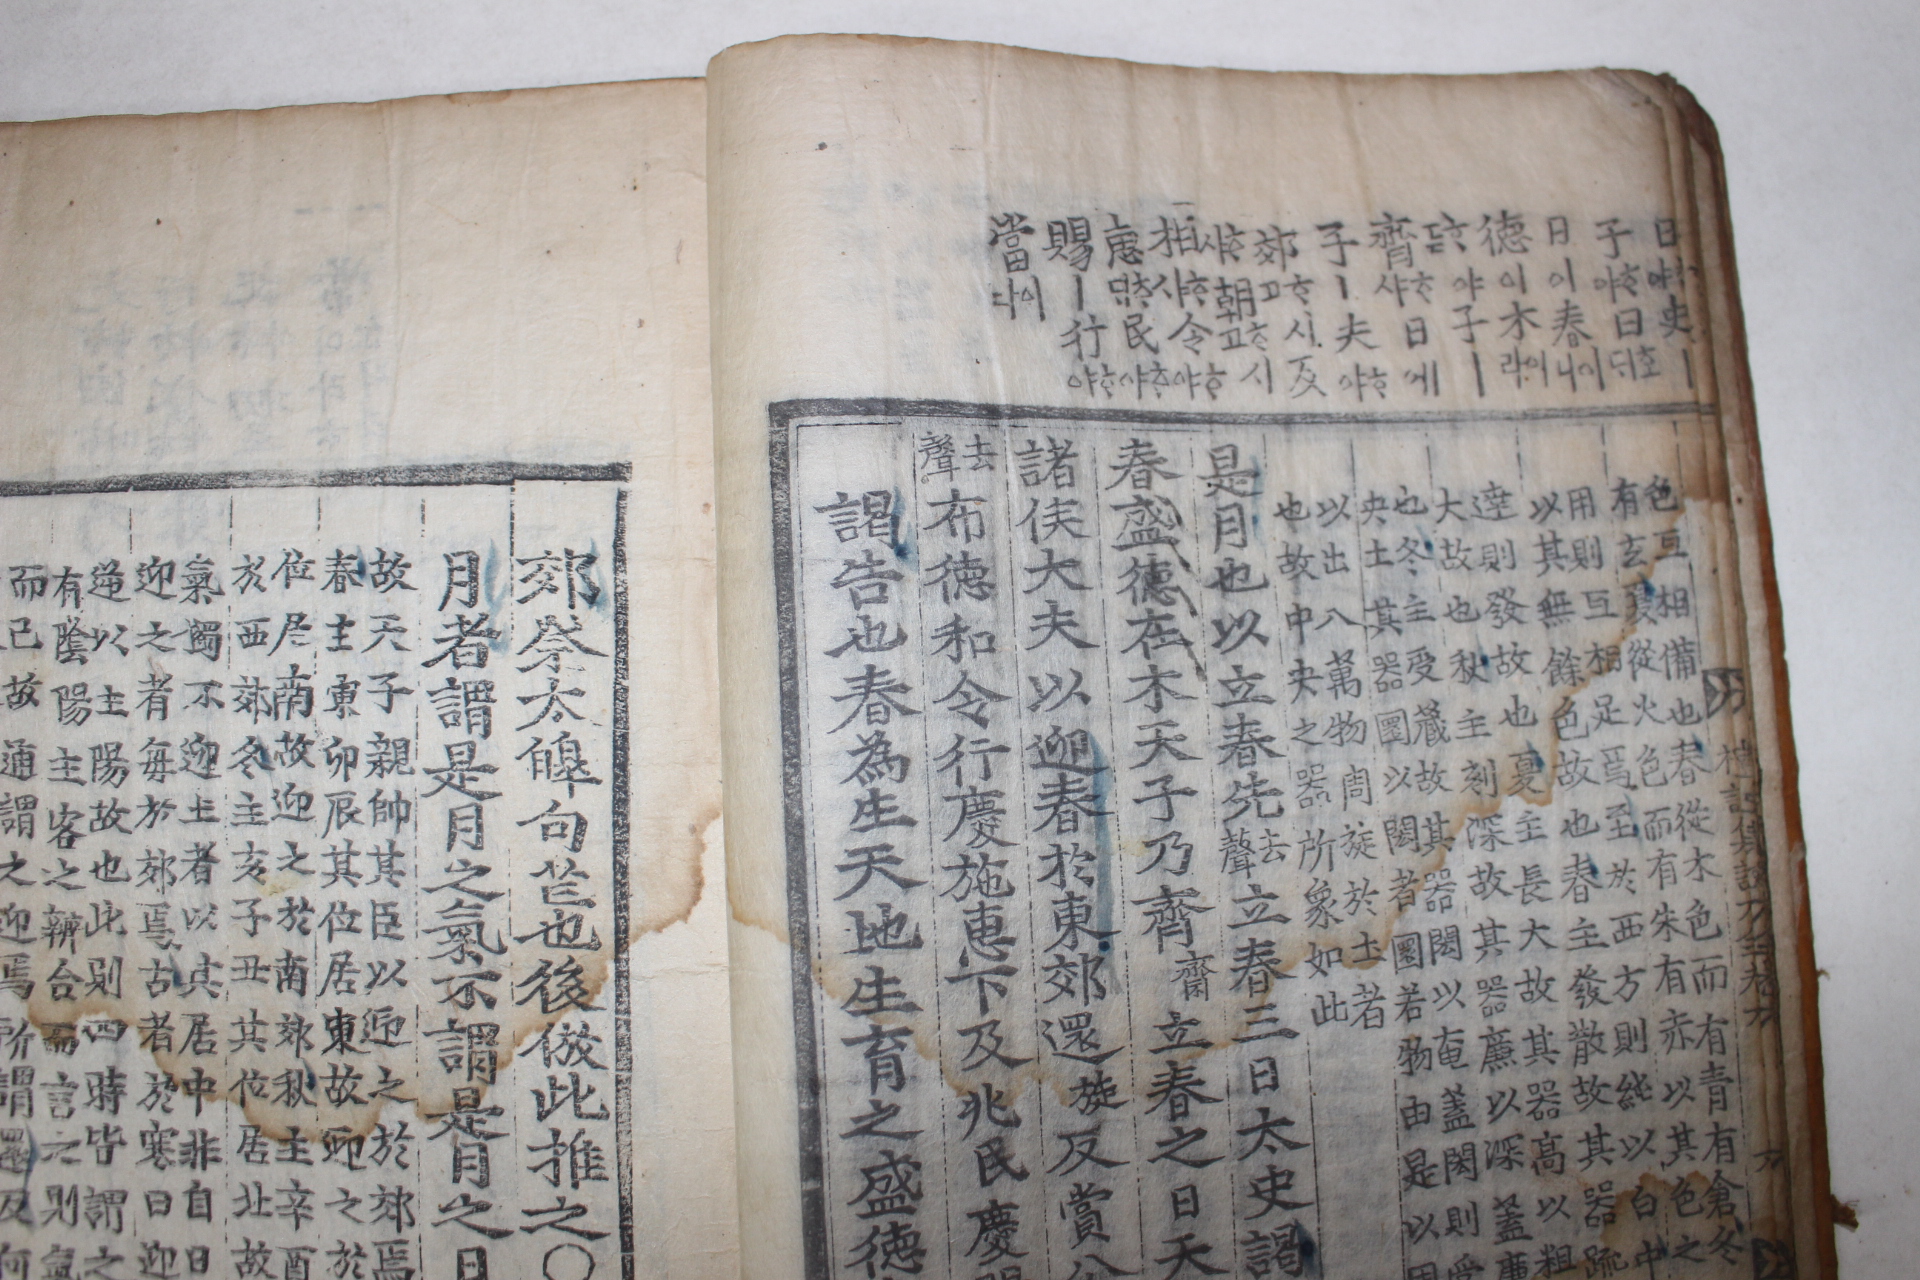 日야ᄒᆞ史ㅣ
子야ᄒᆞ日ᄃᆡ호
日이春니이
德이木라이
ᄒᆞ야子ㅣ
齊샤ᄒᆞ日에
子ㅣ夫야ᄒᆞ
郊고ᄒᆞ시反
샤ᄒᆞ朝고ᄒᆞ시
相샤ᄒᆞ令야ᄒᆞ
惠民야ᄒᆞ
賜ㅣ行야ᄒᆞ
當다이
禮記集說大全卷六 六
色互相備也春從木色而有青有倉冬
有玄夏從火色而有朱有赤以其色之
用則互相足焉至於西方則純以白中
以其無餘色故也春主發散故其器疏
達則發故也夏主長大故其器高以粗
大故也秋主刻深故其器廉以深蓋廉
也冬主受藏故其器閎以奄蓋閎則受
央土其器圜以閎者圜若物由是以周
以出入萬物周旋於土者
也故中央之器所象如此
是月也以立春先去聲立春三日太史謁
春盛德在木天子乃齊齋立春之日天
諸侯大夫以迎春於東郊還旋反賞公
去聲布德和令行慶施惠下及兆民慶
謁告也春為生天地生育之盛德
郊祭太皥句芒也後倣此推之○
月者謂是月之氣不謂是月之日
故天子親帥其臣以迎之於郊焉
春主東卯辰其位居東故迎之於
位居南故迎之於南郊秋主辛酉
於西郊冬主亥子丑其位居北故
氣獨不迎土者以其居中非自日
迎之者每於郊焉古者於寒日迎
逆以主陽故也此則四時皆謂之
有陰陽主客之辨合而言之則氣
而已故通謂之迎焉所謂還反何